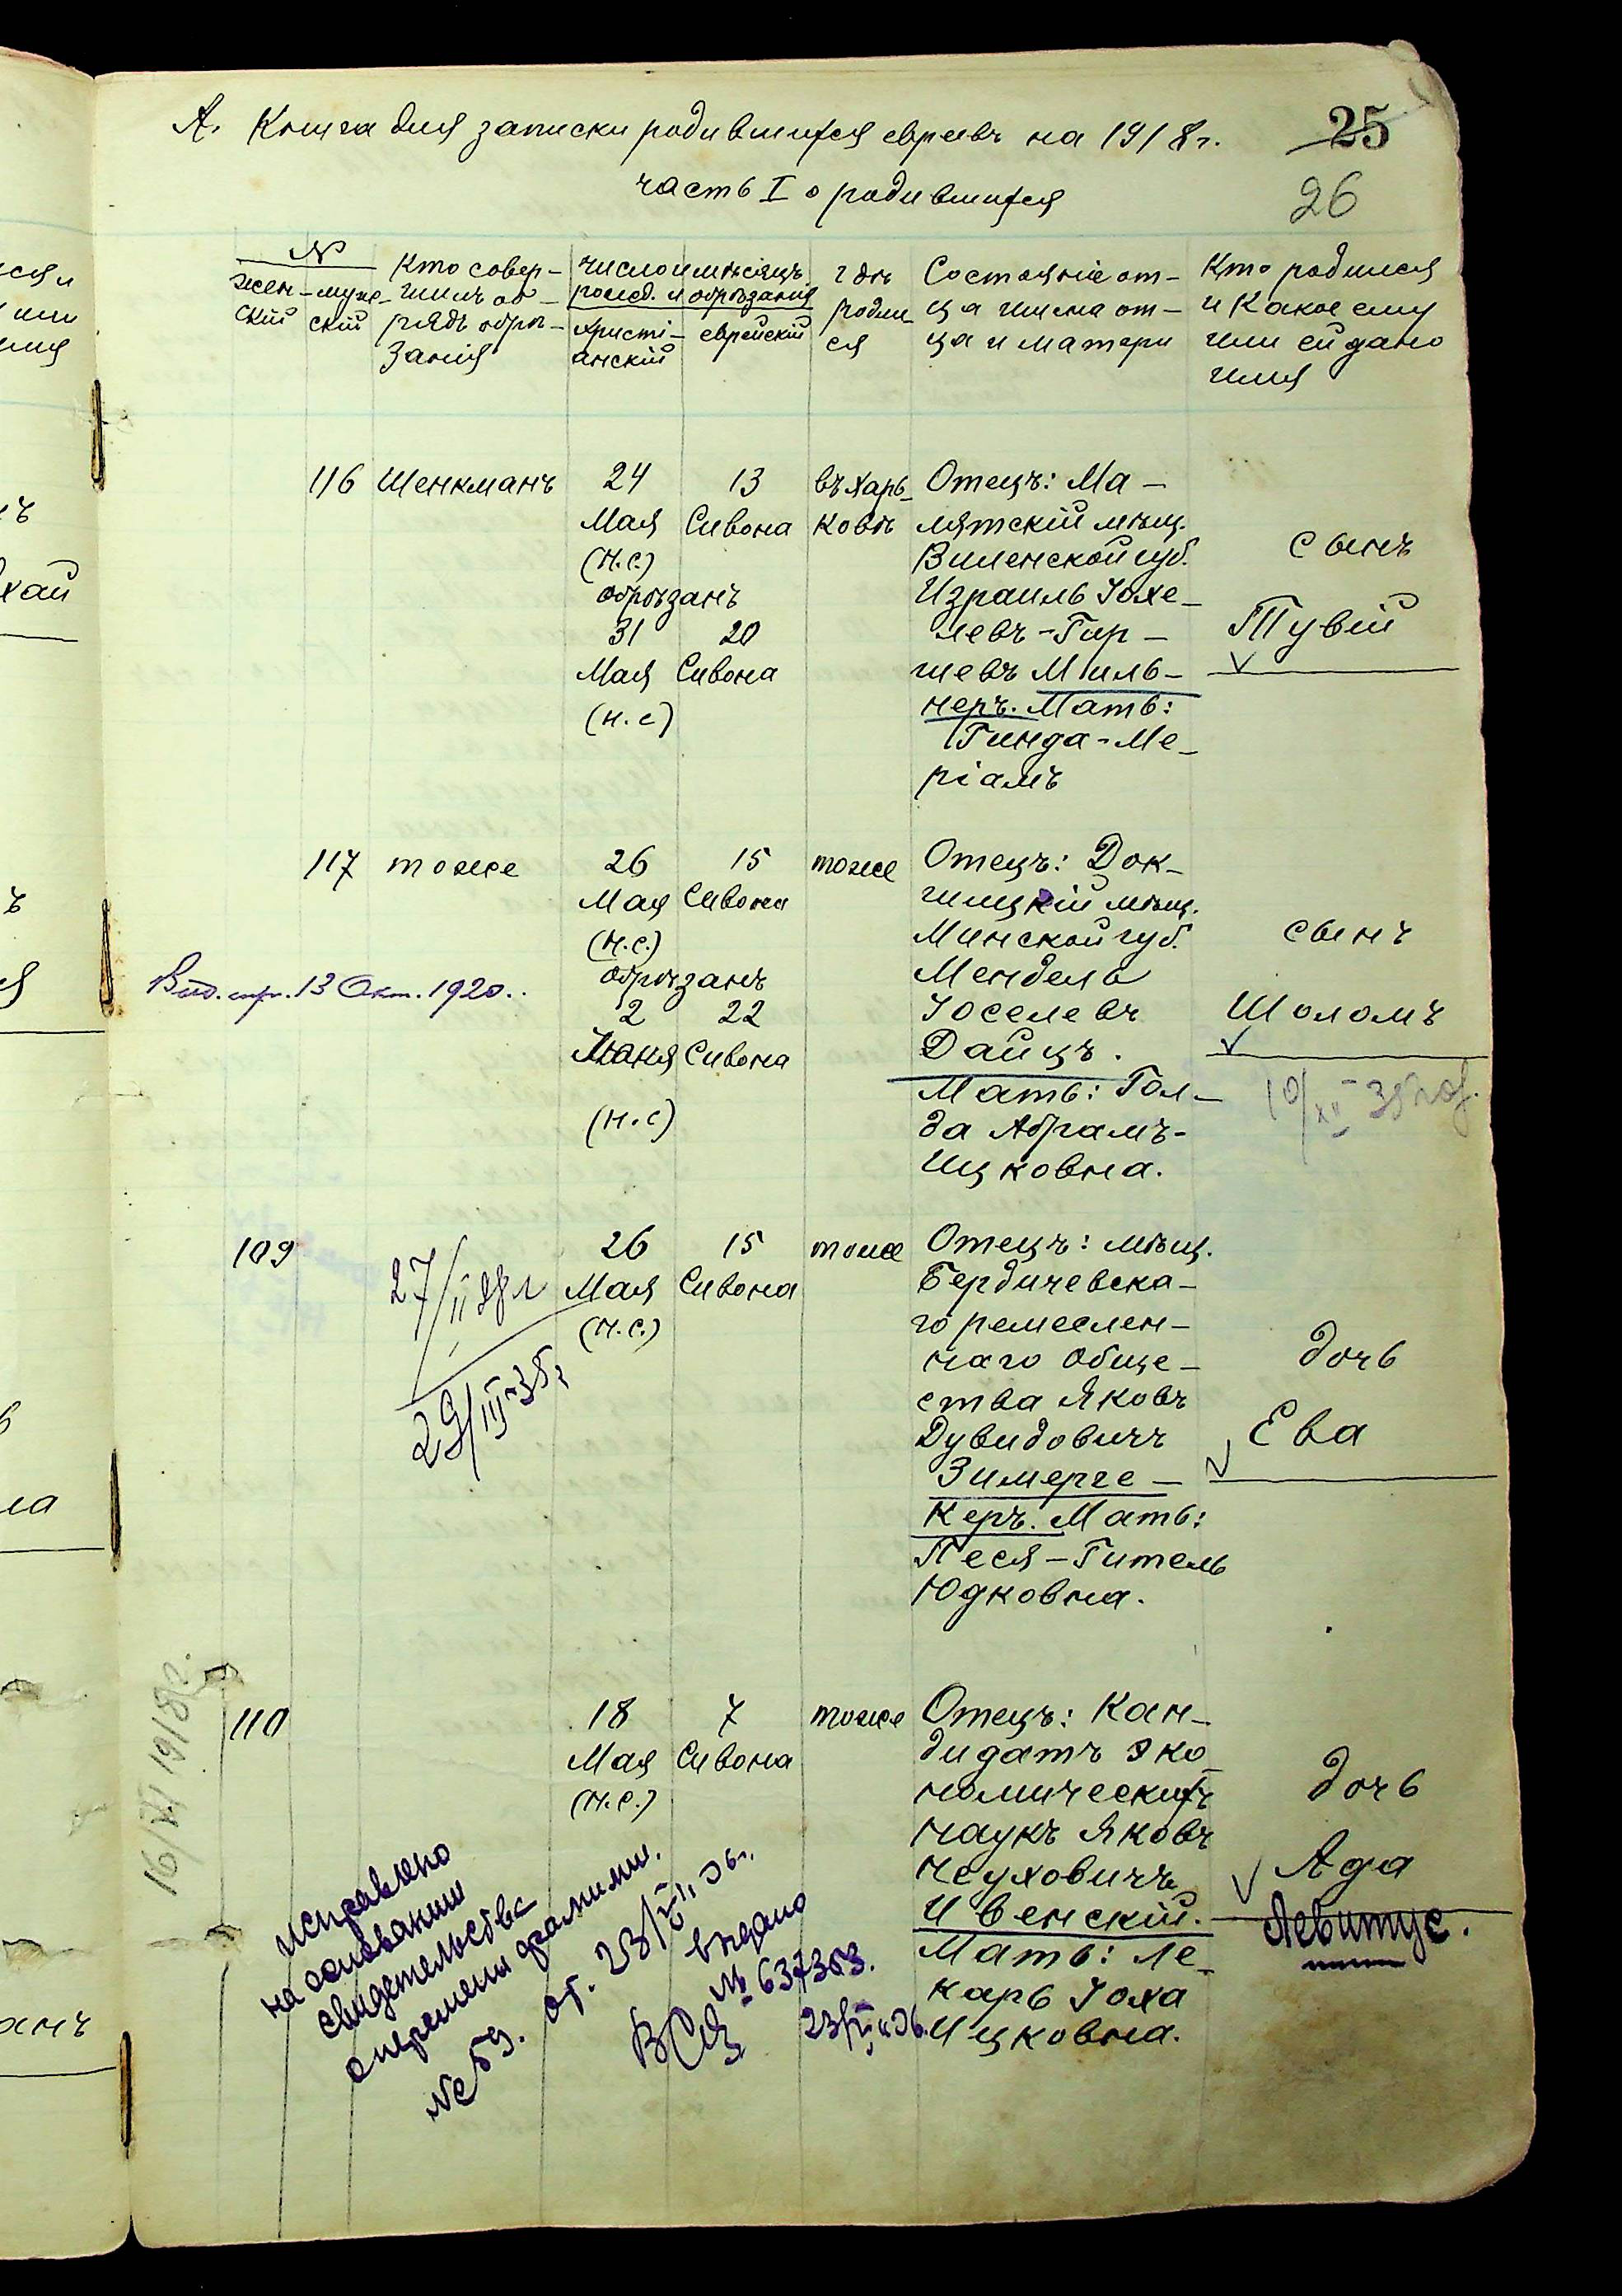 А. Книга для записки родившихся евреевъ на 1918 г.
25
часть I о родившихся
26
№
жен-
скій
муже-
скій
Кто совер-
шилъ об-
рядъ обрѣ-
занія
число и мѣсяцъ
рожд. и обрѣзанія
христі-
анскій
еврейскій
гдѣ
родил-
ся
Состояніе от-
ца имена от-
ца и матери
Кто родился
и какое ему
или ей дано
имя
116 Шенкманъ
24 13
Мая Сивона
(н.с.)
обрѣзанъ
31 20
Мая Сивона
(н.с)
въ Харь-
ковѣ
Отецъ: Ма-
лятскій мѣщ.
Виленской губ.
Израиль Іохе-
левъ-Гир-
шевъ Миль-
неръ. Мать:
Гинда-Ме-
ріамъ
сынъ
Тувій
117 тоже
26 15
Мая Сивона
(н.с.)
обрѣзанъ
2 22
Іюня Сивона
(н.с)
тоже
Отецъ: Док-
шицкій мѣщ.
Минской губ.
Мендель
Іоселевъ
Дайцъ.
Мать: Гол-
да Абрамъ-
Ицковна.
сынъ
Шоломъ
Выд. спр. 13 Окт. 1920..
109
26 15
Мая Сивона
(н.с.)
тоже
Отецъ: мѣщ.
Бердичевска-
го ремеслен-
наго Обще-
ства Яковъ
Дувидовичъ
Зимерге-
керъ. Мать:
Песя-Гитель
Юдковна.
дочь
Ева
27/II
29/III-35г
110
18 7
Мая Сивона
(н.с.)
тоже
Отецъ: Кан-
дидатъ эко
номическихъ
наукъ Яковъ
Неуховичъ
Ивенскій.
Мать: Ле-
карь Іоха
Ицковна.
дочь
Ада
Левитус.
16/XI 1918г.
исправлено
на основании
свидетельства
о перемени фамилии.
№ 59. от. 23/
выдано
№ 637353.
23/